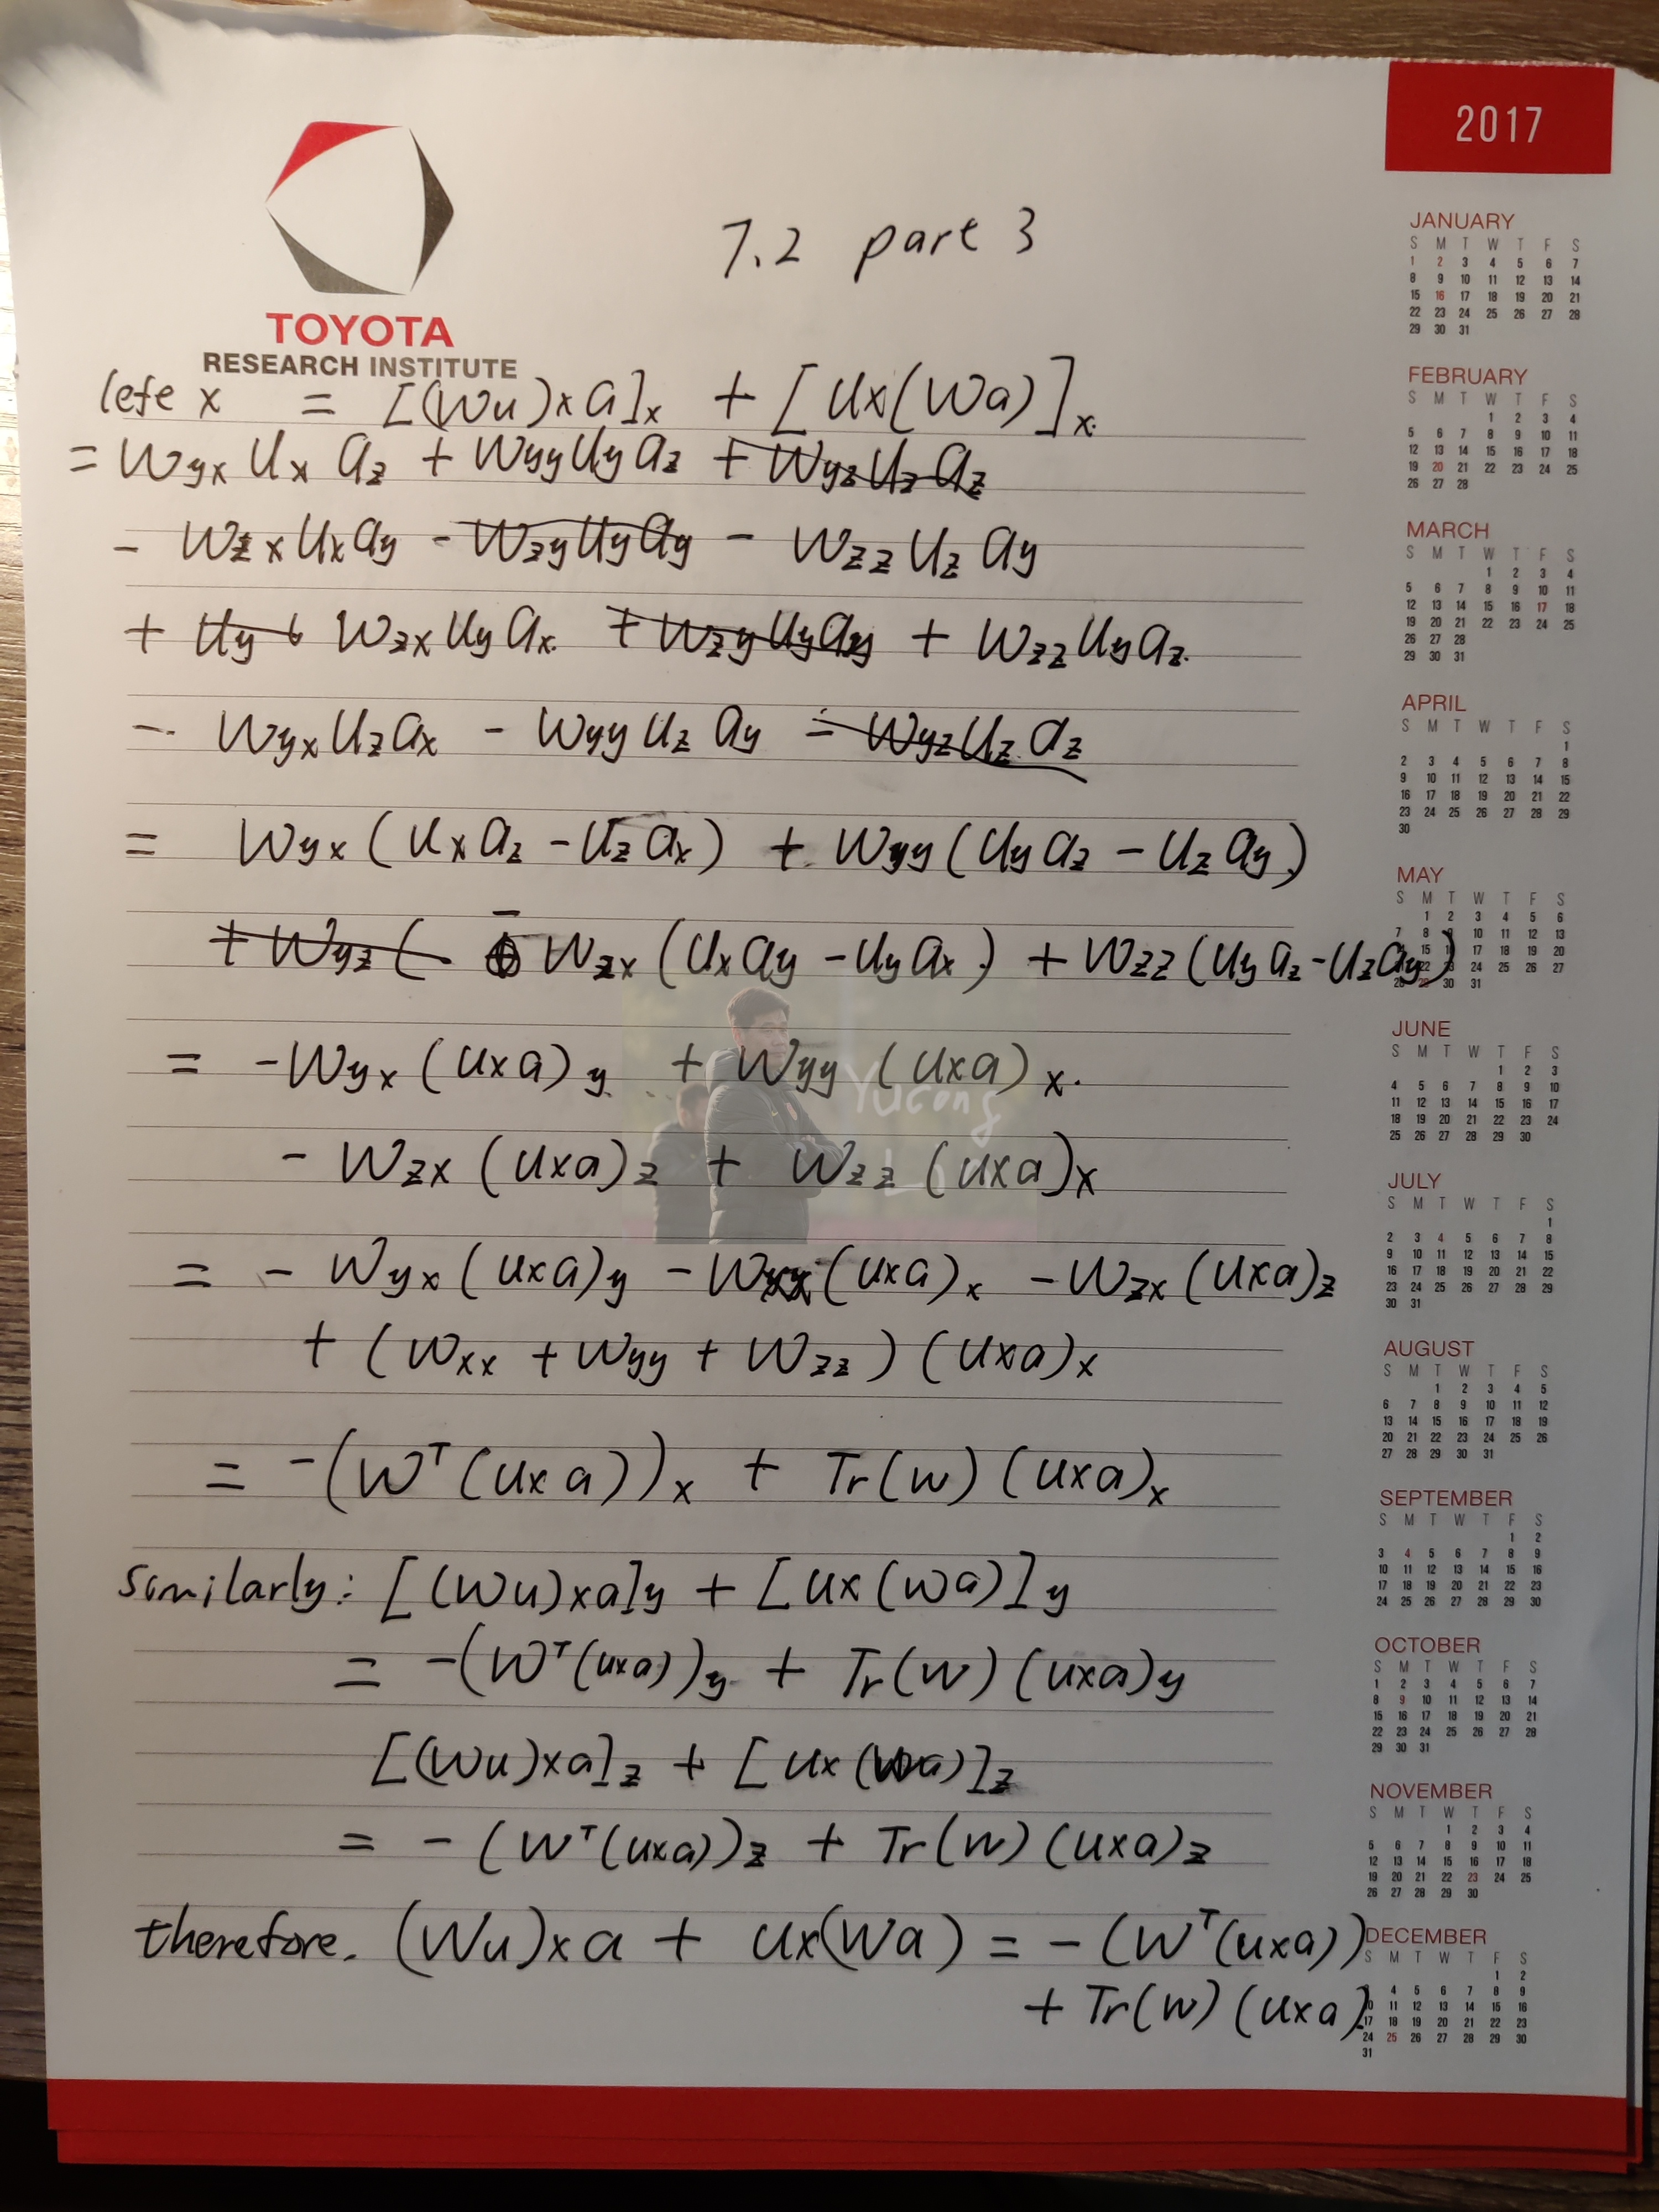 2017
TOYOTA
RESEARCH INSTITUTE
7.2 part 3
lefe x = [(Wu)×a]x + [u×(Wa)]x.
= Wyx Ux az + Wyy Uy az + Wyz Uz az
- Wzx Ux ay - Wzy Uy ay - Wzz Uz ay
+ Uy Wzx Uy ax. + Wzy Uy ay + Wzz Uy az.
- Wyx Uz ax - Wyy Uz ay - Wyz Uz az
= Wyx (Ux az - Uz ax) + Wyy (Uy az - Uz ay)
+ Wyz ( - Wzx (Ux ay - Uy ax) + Wzz (Uy az - Uz ay)
= -Wyx (u×a)y + Wyy (u×a)x.
Yucong
- Wzx (u×a)z + Wzz (u×a)x
= - Wyx (u×a)y - Wxx (u×a)x - Wzx (u×a)z
+ (Wxx + Wyy + Wzz) (u×a)x
= -(Wᵀ(u×a))x + Tr(w) (u×a)x
Similarly: [(Wu)×a]y + [u×(wa)]y
= -(Wᵀ(u×a))y + Tr(w) (u×a)y
[(Wu)×a]z + [u×(Wa)]z
= - (Wᵀ(u×a))z + Tr(w) (u×a)z
therefore. (Wu)×a + u×(Wa) = - (Wᵀ(u×a))
+ Tr(w) (u×a).
JANUARY
S M T W T F S
1 2 3 4 5 6 7
8 9 10 11 12 13 14
15 16 17 18 19 20 21
22 23 24 25 26 27 28
29 30 31
FEBRUARY
S M T W T F S
1 2 3 4
5 6 7 8 9 10 11
12 13 14 15 16 17 18
19 20 21 22 23 24 25
26 27 28
MARCH
S M T W T F S
1 2 3 4
5 6 7 8 9 10 11
12 13 14 15 16 17 18
19 20 21 22 23 24 25
26 27 28 29 30 31
APRIL
S M T W T F S
1
2 3 4 5 6 7 8
9 10 11 12 13 14 15
16 17 18 19 20 21 22
23 24 25 26 27 28 29
30
MAY
S M T W T F S
1 2 3 4 5 6
7 8 9 10 11 12 13
15 16 17 18 19 20
22 24 25 26 27
30 31
JUNE
S M T W T F S
1 2 3
4 5 6 7 8 9 10
11 12 13 14 15 16 17
18 19 20 21 22 23 24
25 26 27 28 29 30
JULY
S M T W T F S
1
2 3 4 5 6 7 8
9 10 11 12 13 14 15
16 17 18 19 20 21 22
23 24 25 26 27 28 29
30 31
AUGUST
S M T W T F S
1 2 3 4 5
6 7 8 9 10 11 12
13 14 15 16 17 18 19
20 21 22 23 24 25 26
27 28 29 30 31
SEPTEMBER
S M T W T F S
1 2
3 4 5 6 7 8 9
10 11 12 13 14 15 16
17 18 19 20 21 22 23
24 25 26 27 28 29 30
OCTOBER
S M T W T F S
1 2 3 4 5 6 7
8 9 10 11 12 13 14
15 16 17 18 19 20 21
22 23 24 25 26 27 28
29 30 31
NOVEMBER
S M T W T F S
1 2 3 4
5 6 7 8 9 10 11
12 13 14 15 16 17 18
19 20 21 22 23 24 25
26 27 28 29 30
DECEMBER
S M T W T F S
1 2
4 5 6 7 8 9
11 12 13 14 15 16
17 18 19 20 21 22 23
24 25 26 27 28 29 30
31